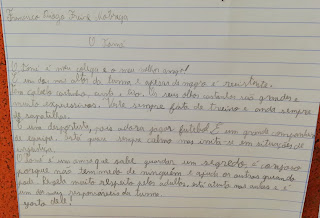 Francisco Tiago Frank
O Tomé
O Tomé é meu colega e o meu melhor amigo!
É um dos mais altos da turma e apesar de magro é resistente.
O cabelo castanho, curto e liso. Os seus olhos castanhos são grandes e
muito expressivos. Veste sempre fato de treino e anda sempre
de sapatilhas.
É um desportista, pois adora jogar futebol! É um grande companheiro
de equipa. Está quase sempre calmo mas irrita-se em situações de
injustiça.
Tomé é um amigo que sabe guardar um segredo, é corajoso
porque não tem medo de ninguém e ajuda os outros quando
pode. Mostra muito respeito pelos adultos, está atento nas aulas e é
um dos mais da turma.
gosto dele!